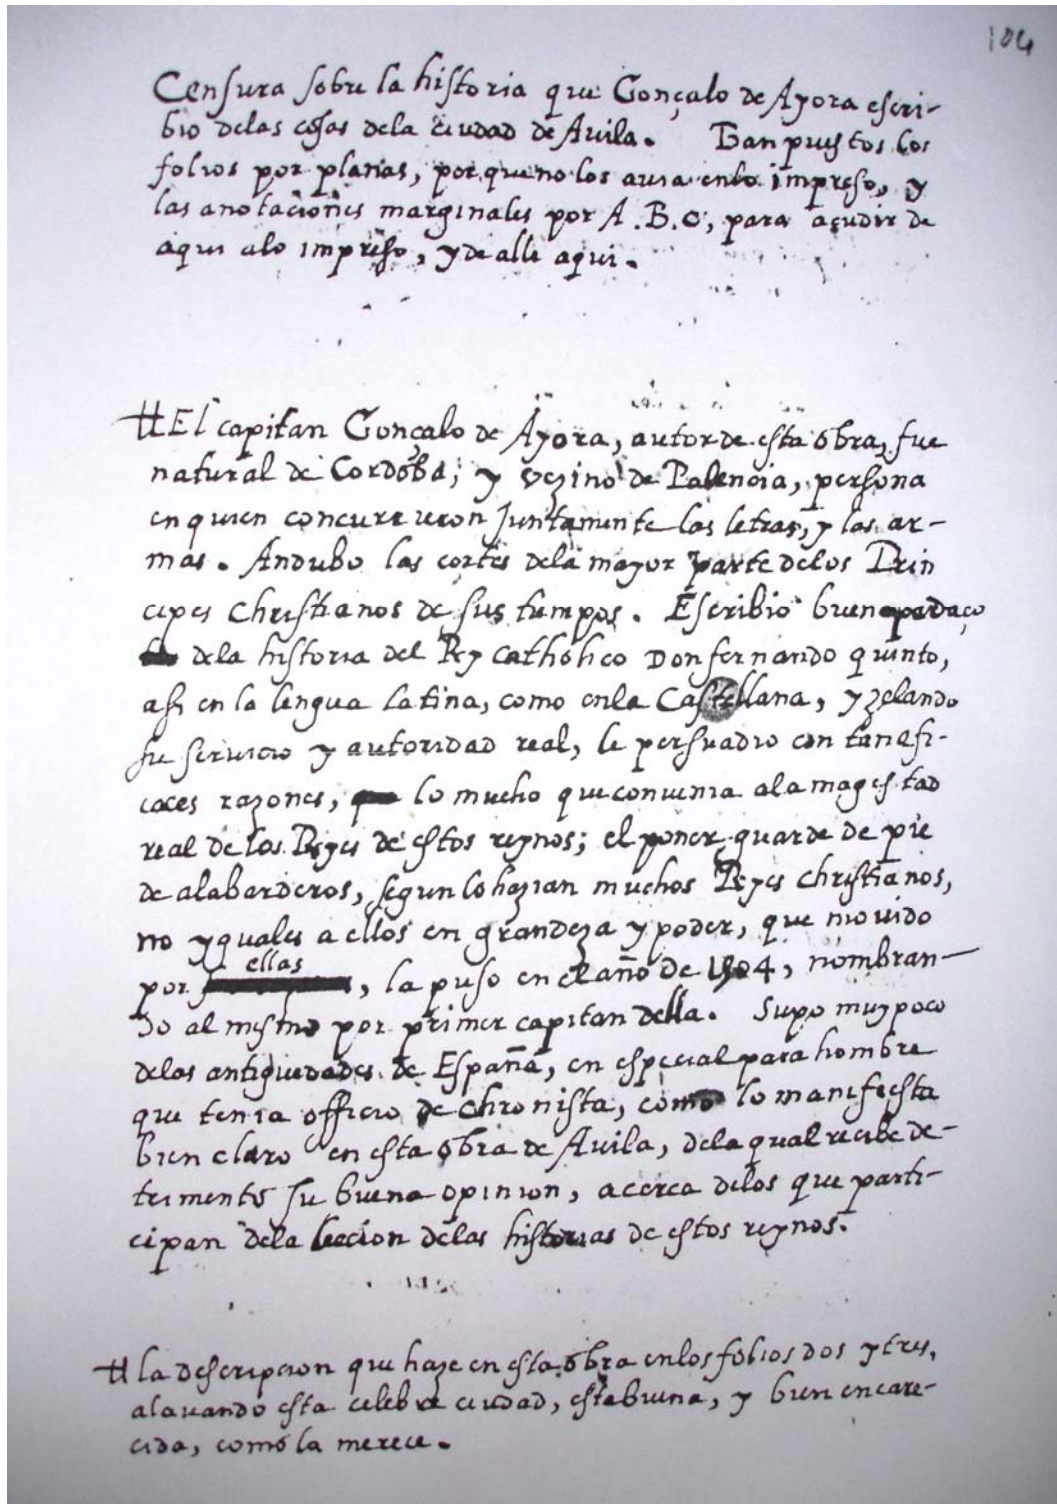 104
Censura sobre la historia que Gonçalo de Ayora escri-
bio delas cosas dela ciudad de Auila. Ban puestos los
folios por planas, por que no los auia en lo impreso, y
las anotaciones marginales por A.B.C, para acudir de
aqui alo impreso, y de alli aqui.
El capitan Gonçalo de Ayora, autor de esta obra, fue
natural de Cordoba; y vezino de Palencia, persona
en quien concurrieron juntamente las letras, y las ar-
mas. Andubo las cortes dela mayor parte delos Prin
cipes christianos de sus tiempos. Escribio buen pedaço
dela historia del Rey catholico Don fernando quinto,
asi en la lengua latina, como enla Castellana, y zelando
su seruicio y autoridad real, le persuadio con tan efi-
caces razones, lo mucho que conuenia ala magestad
real de los Reyes de estos reynos; el poner guarde de pie
de alabarderos, segun lo hazian muchos Reyes christianos,
no yguales a ellos en grandeza y poder, que mouido
por ellas, la puso en el año de 1504, nombran-
do al mesmo por primer capitan della. Supo muy poco
delas antiguedades de España, en especial para hombre
que tenia officio de chronista, como lo manifiesta
bien claro en esta obra de Auila, dela qual recibe de-
trimento su buena opinion, acerca delos que parti-
cipan dela leccion delas historias de estos reynos.
la descripcion que haze en esta obra enlos folios dos y tres,
alauando esta celebre ciudad, esta buena, y bien encare-
cida, como la merece.